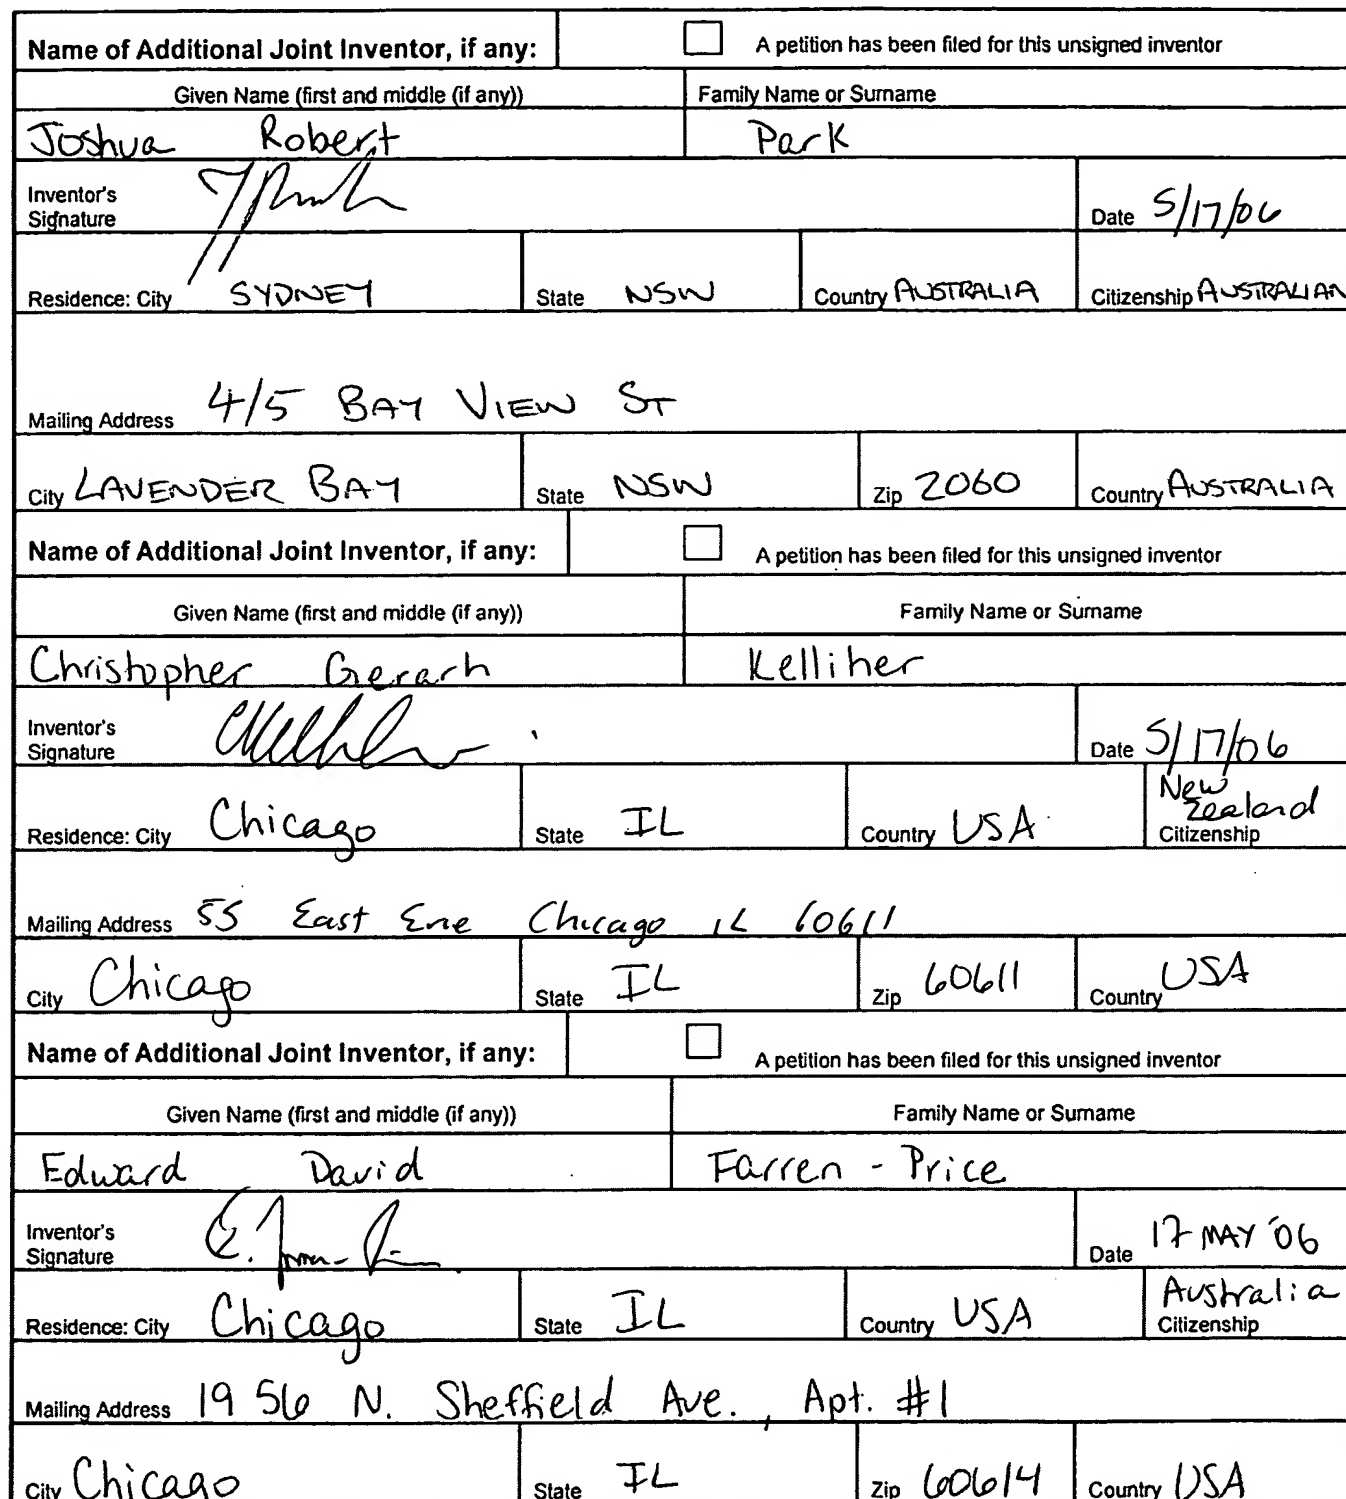 Name of Additional Joint Inventor, if any: A petition has been filed for this unsigned inventor
Given Name (first and middle (if any)) Family Name or Surname
Joshua Robert Park
Inventor's
Signature Date 5/17/06
Residence: City SYDNEY State NSW Country AUSTRALIA Citizenship AUSTRALIAN
Mailing Address 4/5 BAY VIEW ST
City LAVENDER BAY State NSW Zip 2060 Country AUSTRALIA
Name of Additional Joint Inventor, if any: A petition has been filed for this unsigned inventor
Given Name (first and middle (if any)) Family Name or Surname
Christopher Gerarh Kelliher
Inventor's
Signature Date 5/17/06
Residence: City Chicago State IL Country USA New Zealand Citizenship
Mailing Address 55 East Erie Chicago IL 60611
City Chicago State IL Zip 60611 Country USA
Name of Additional Joint Inventor, if any: A petition has been filed for this unsigned inventor
Given Name (first and middle (if any)) Family Name or Surname
Edward David Farren - Price
Inventor's
Signature Date 17 MAY '06
Residence: City Chicago State IL Country USA Australia Citizenship
Mailing Address 1956 N. Sheffield Ave., Apt. #1
City Chicago State IL Zip 60614 Country USA